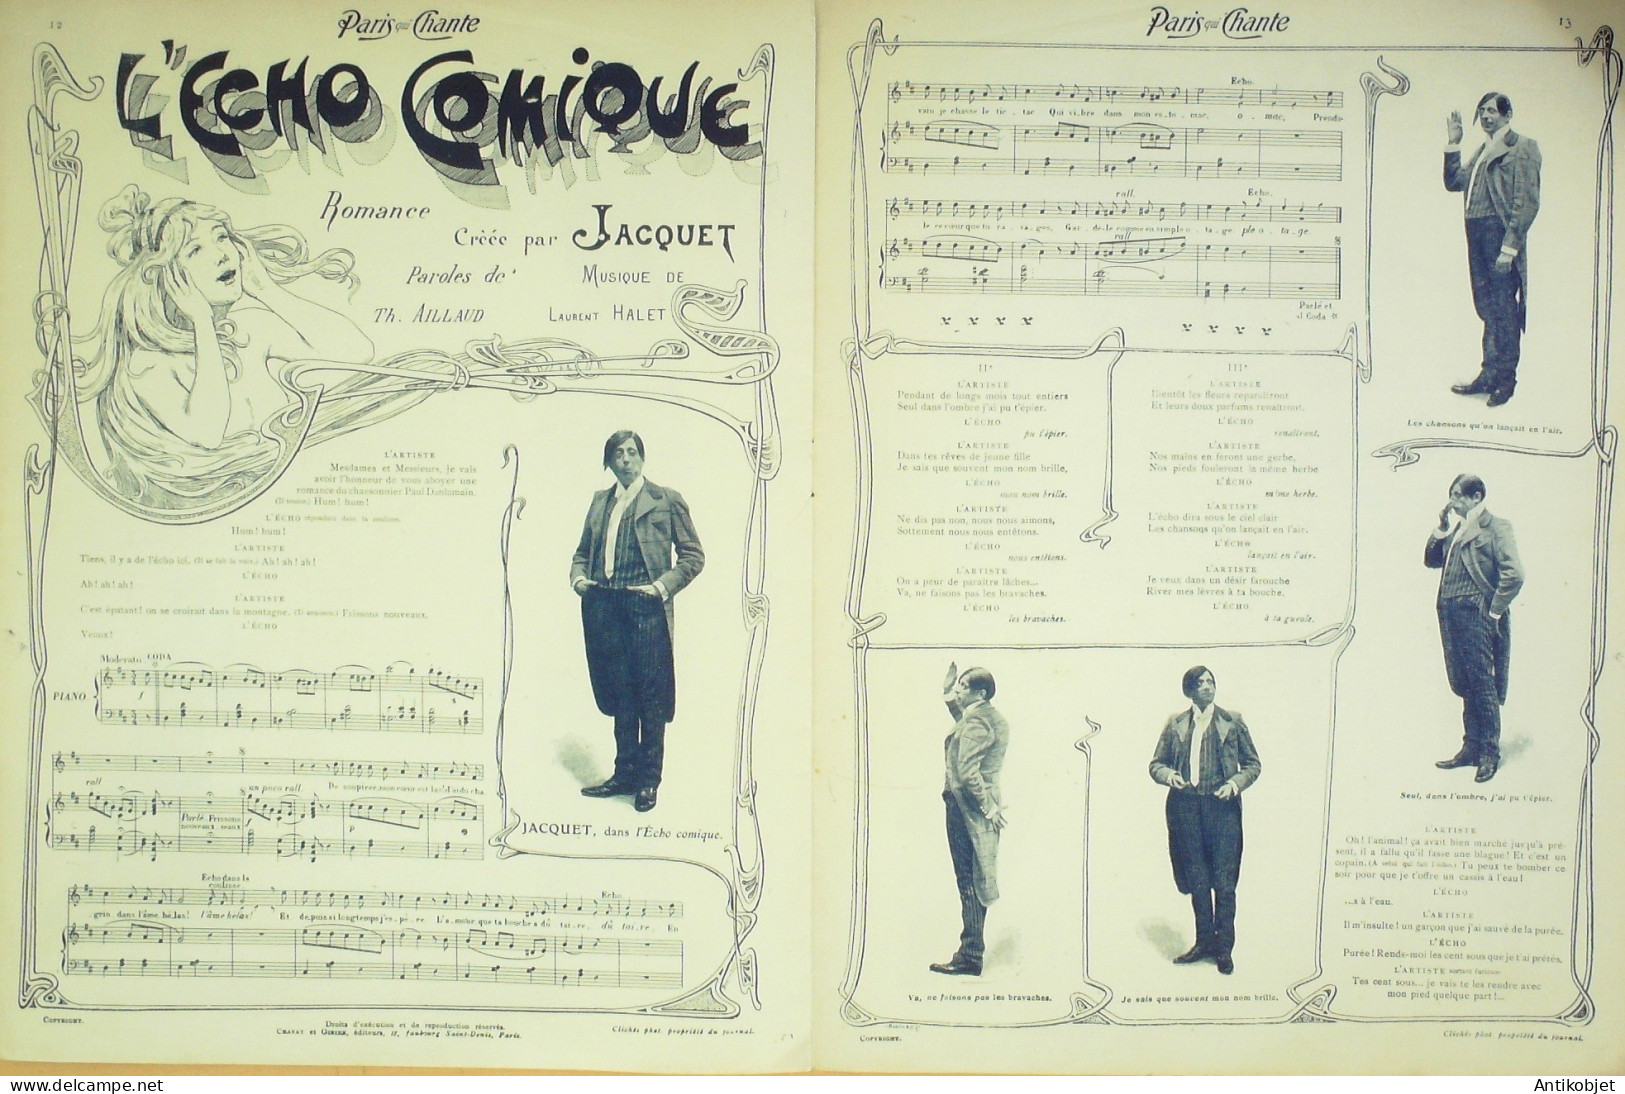 12
Paris qui Chante
L'ECHO COMIQUE
Romance
Créée par JACQUET
Paroles de
MUSIQUE DE
TH. AILLAUD
LAURENT HALET
L'ARTISTE
Mesdames et Messieurs, je vais
avoir l'honneur de vous aboyer une
romance du chansonnier Paul
(Il tousse.) Hum! hum!
L'ÉCHO répondant dans la coulisse.
Hum! hum!
L'ARTISTE
Tiens, il y a de l'écho ici. (Il se fait la voix.) Ah! ah! ah!
L'ÉCHO
Ah! ah! ah!
L'ARTISTE
C'est épatant! on se croirait dans la montagne. (Il annonce.) Frissons nouveaux.
L'ÉCHO
Veaux!
Moderato CODA
PIANO
rall
un poco rall.
De soupirer, mon cœur est las! J'ai du cha
Parlé. Frissons
nouveaux eaux
Echo dans la
coulisse
Echo
grin dans l'âme hélas! l'âme hélas! Et depuis si longtemps j'espère L'amour que ta bouche a dû taire, dû taire, En
JACQUET, dans l'Écho comique.
COPYRIGHT.
Droits d'exécution et de reproduction réservés.
éditeurs, 17, faubourg Saint-Denis, Paris.
Clichés phot. propriété du journal.
Paris qui Chante
13
Echo.
vain je chasse le tic-tac Qui vibre dans mon estomac, omac, Prends
rall.
Echo.
le ce cœur que tu ravages, Garde-le comme un simple otage. ple otage.
rall
Parlé et
Coda
IIe
L'ARTISTE
Pendant de longs mois tout entiers
Seul dans l'ombre j'ai pu t'épier.
L'ÉCHO
pu t'épier.
L'ARTISTE
Dans tes rêves de jeune fille
Je sais que souvent mon nom brille,
L'ÉCHO
mon nom brille.
L'ARTISTE
Ne dis pas non, nous nous aimons,
Sottement nous nous entêtons.
L'ÉCHO
nous entêtons.
L'ARTISTE
On a peur de paraître lâches...
Va, ne faisons pas les bravaches.
L'ÉCHO
les bravaches.
IIIe
L'ARTISTE
Bientôt les fleurs reparaîtront
Et leurs doux parfums renaîtront.
L'ÉCHO
renaîtront,
L'ARTISTE
Nos mains en feront une gerbe,
Nos pieds fouleront la même herbe
L'ÉCHO
même herbe.
L'ARTISTE
L'écho dira sous le ciel clair
Les chansons qu'on lançait en l'air.
L'ÉCHO
lançait en l'air.
L'ARTISTE
Je veux dans un désir farouche
River mes lèvres à ta bouche.
L'ÉCHO
à ta gueule.
Les chansons qu'on lançait en l'air.
Seul, dans l'ombre, j'ai pu t'épier.
Va, ne faisons pas les bravaches.
Je sais que souvent mon nom brille.
L'ARTISTE
Oh! l'animal! ça avait bien marché jusqu'à pré-
sent, il a fallu qu'il fasse une blague! Et c'est un
copain. (A celui qui fait l'écho.) Tu peux te bomber ce
soir pour que je t'offre un cassis à l'eau!
L'ÉCHO
...s à l'eau.
L'ARTISTE
Il m'insulte! un garçon que j'ai sauvé de la purée.
L'ÉCHO
Purée! Rends-moi les cent sous que je t'ai prêtés.
L'ARTISTE sortant furieux
Tes cent sous... je vais te les rendre avec
mon pied quelque part!...
COPYRIGHT.
Clichés phot. propriété du journal.
delcampe.net
Antikobjet